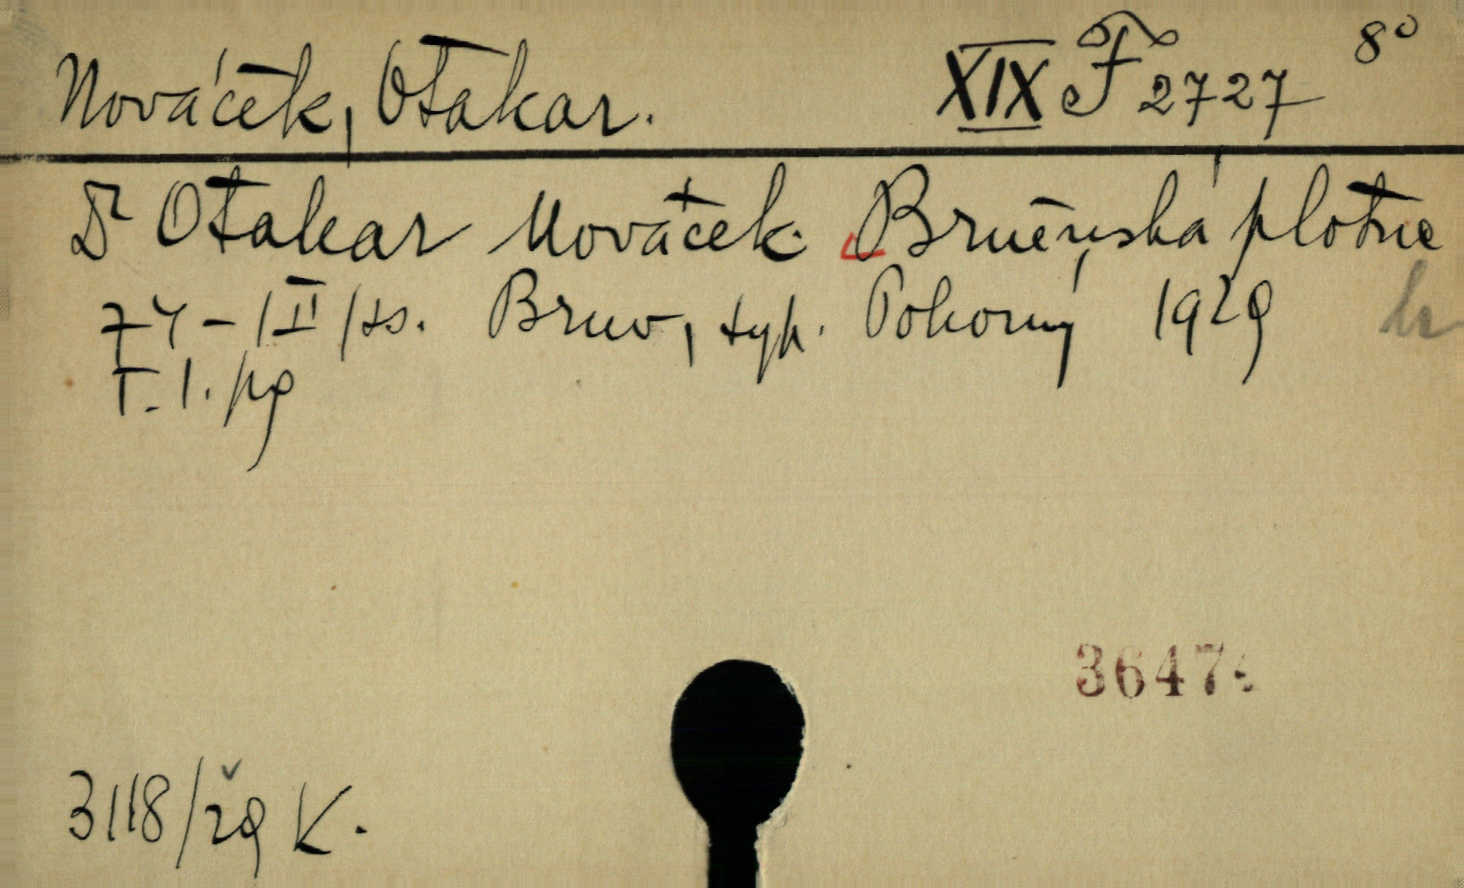 Nováček, Otakar. XIX F 2727 8°
Dr Otakar Nováček. Bručenská plotne
74-/II/ss. Brno, typ. Pokorný 1929
T. 1. pg
3647
3118/29 K.